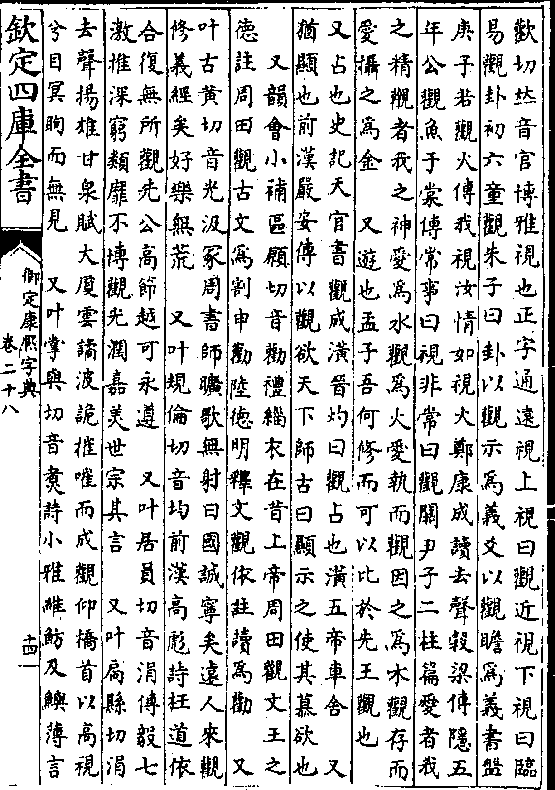 歡切𠀤音官博雅視也正字通遠視上視曰觀近視下視曰臨
易觀卦初六童觀朱子曰卦以觀示爲義爻以觀瞻爲義書盤
庚予若觀火傳我視汝情如視火鄭康成讀去聲穀梁傳隱五
年公觀魚于棠傳常事曰視非常曰觀關尹子二柱篇愛者我
之精觀者我之神愛爲水觀爲火愛執而觀因之爲木觀存而
愛攝之爲金　又遊也孟子吾何修而可以比於先王觀也
又占也史記天官書觀成潢晉灼曰觀占也潢五帝車舍　又
猶顯也前漢嚴安傳以觀欲天下師古曰顯示之使其慕欲也
又韻會小補區願切音勸禮緇衣在昔上帝周田觀文王之
德註周田觀古文爲割申勸陸德明釋文觀依註讀爲勸　又
叶古黄切音光汲冢周書師曠歌無射曰國誠寧矣遠人來觀
修義經矣好樂無荒　又叶規倫切音均前漢高彪詩枉道依
合復無所觀先公高節越可永遵　又叶居員切音涓傅毅七
激推深窮類靡不博觀光潤嘉美世宗其言　又叶扃縣切涓
去聲揚雄甘泉賦大厦雲譎波詭摧嗺而成觀仰橋首以高視
兮目冥眴而無見　又叶掌與切音煑詩小雅維魴及鱮薄言
欽定四庫全書
御定康熙字典
卷二十八
十四